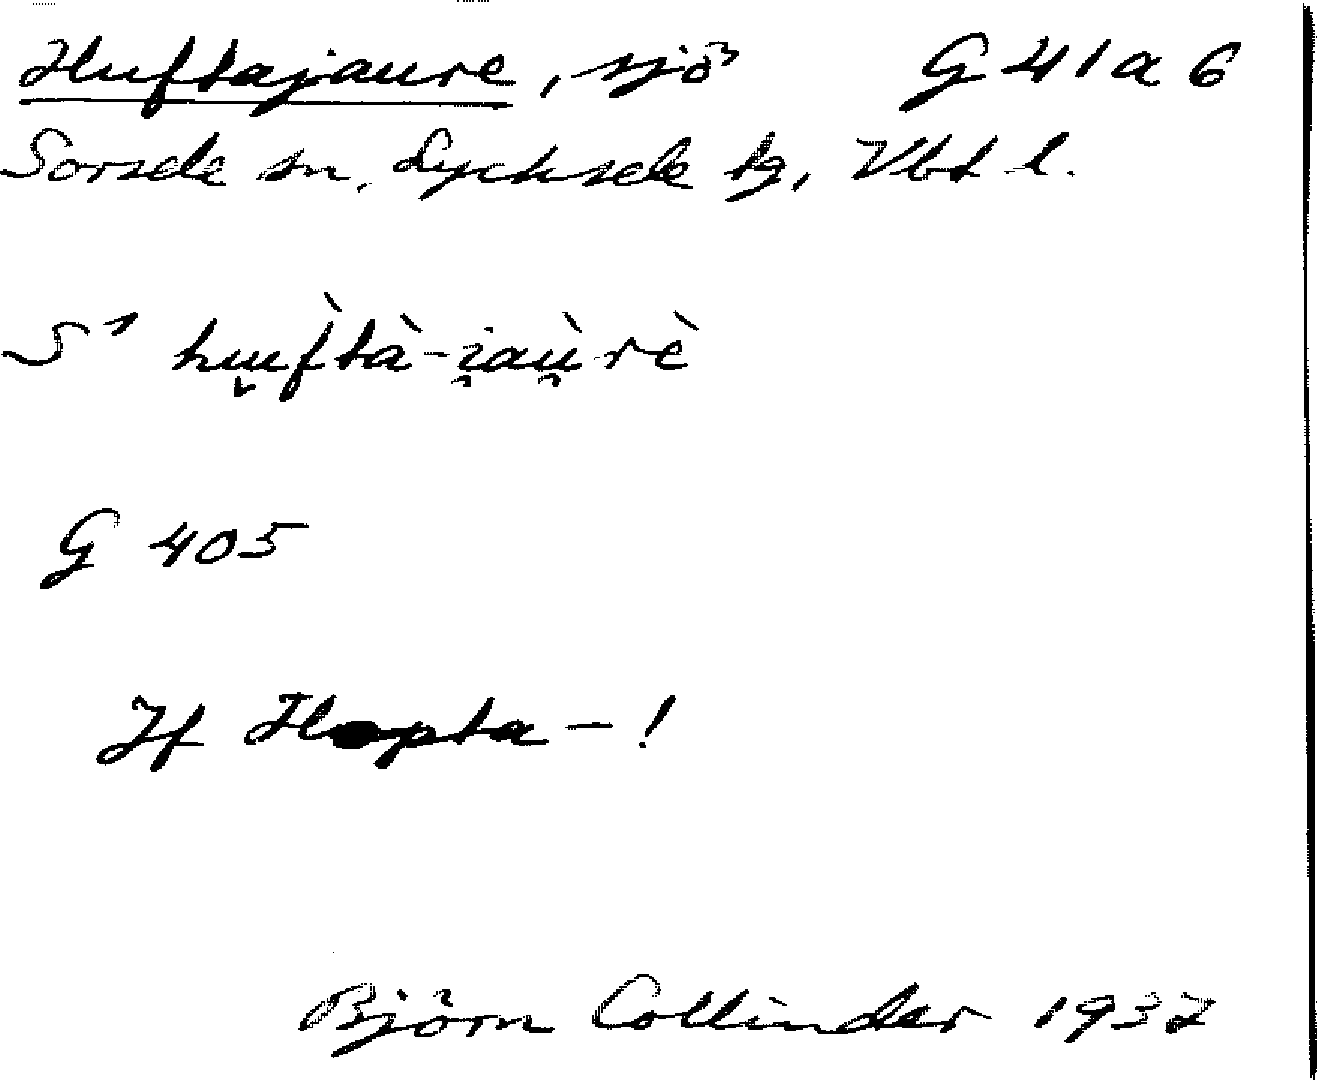 Huftajaure, sjö G 41 a 6
Sorsele sn, Lycksele tg, Vbt l.
S¹ hu̬uf̀tà-i̯aù̯rè
G 405
Jf Hopta-!
Björn Collinder 1937